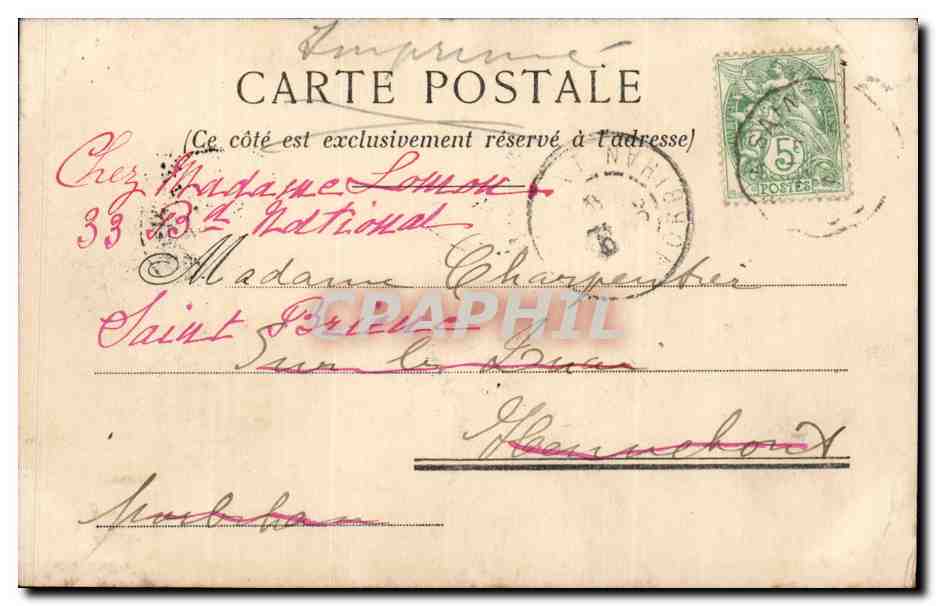 Imprimé
CARTE POSTALE
(Ce côté est exclusivement réservé à l'adresse)
Chez Madame
33 Bd National
Madame Charpentier
Saint Brieuc
Sur le Quai
Hennebont
Morbihan
5c
POSTES
MORBIHAN
CPAPHIL